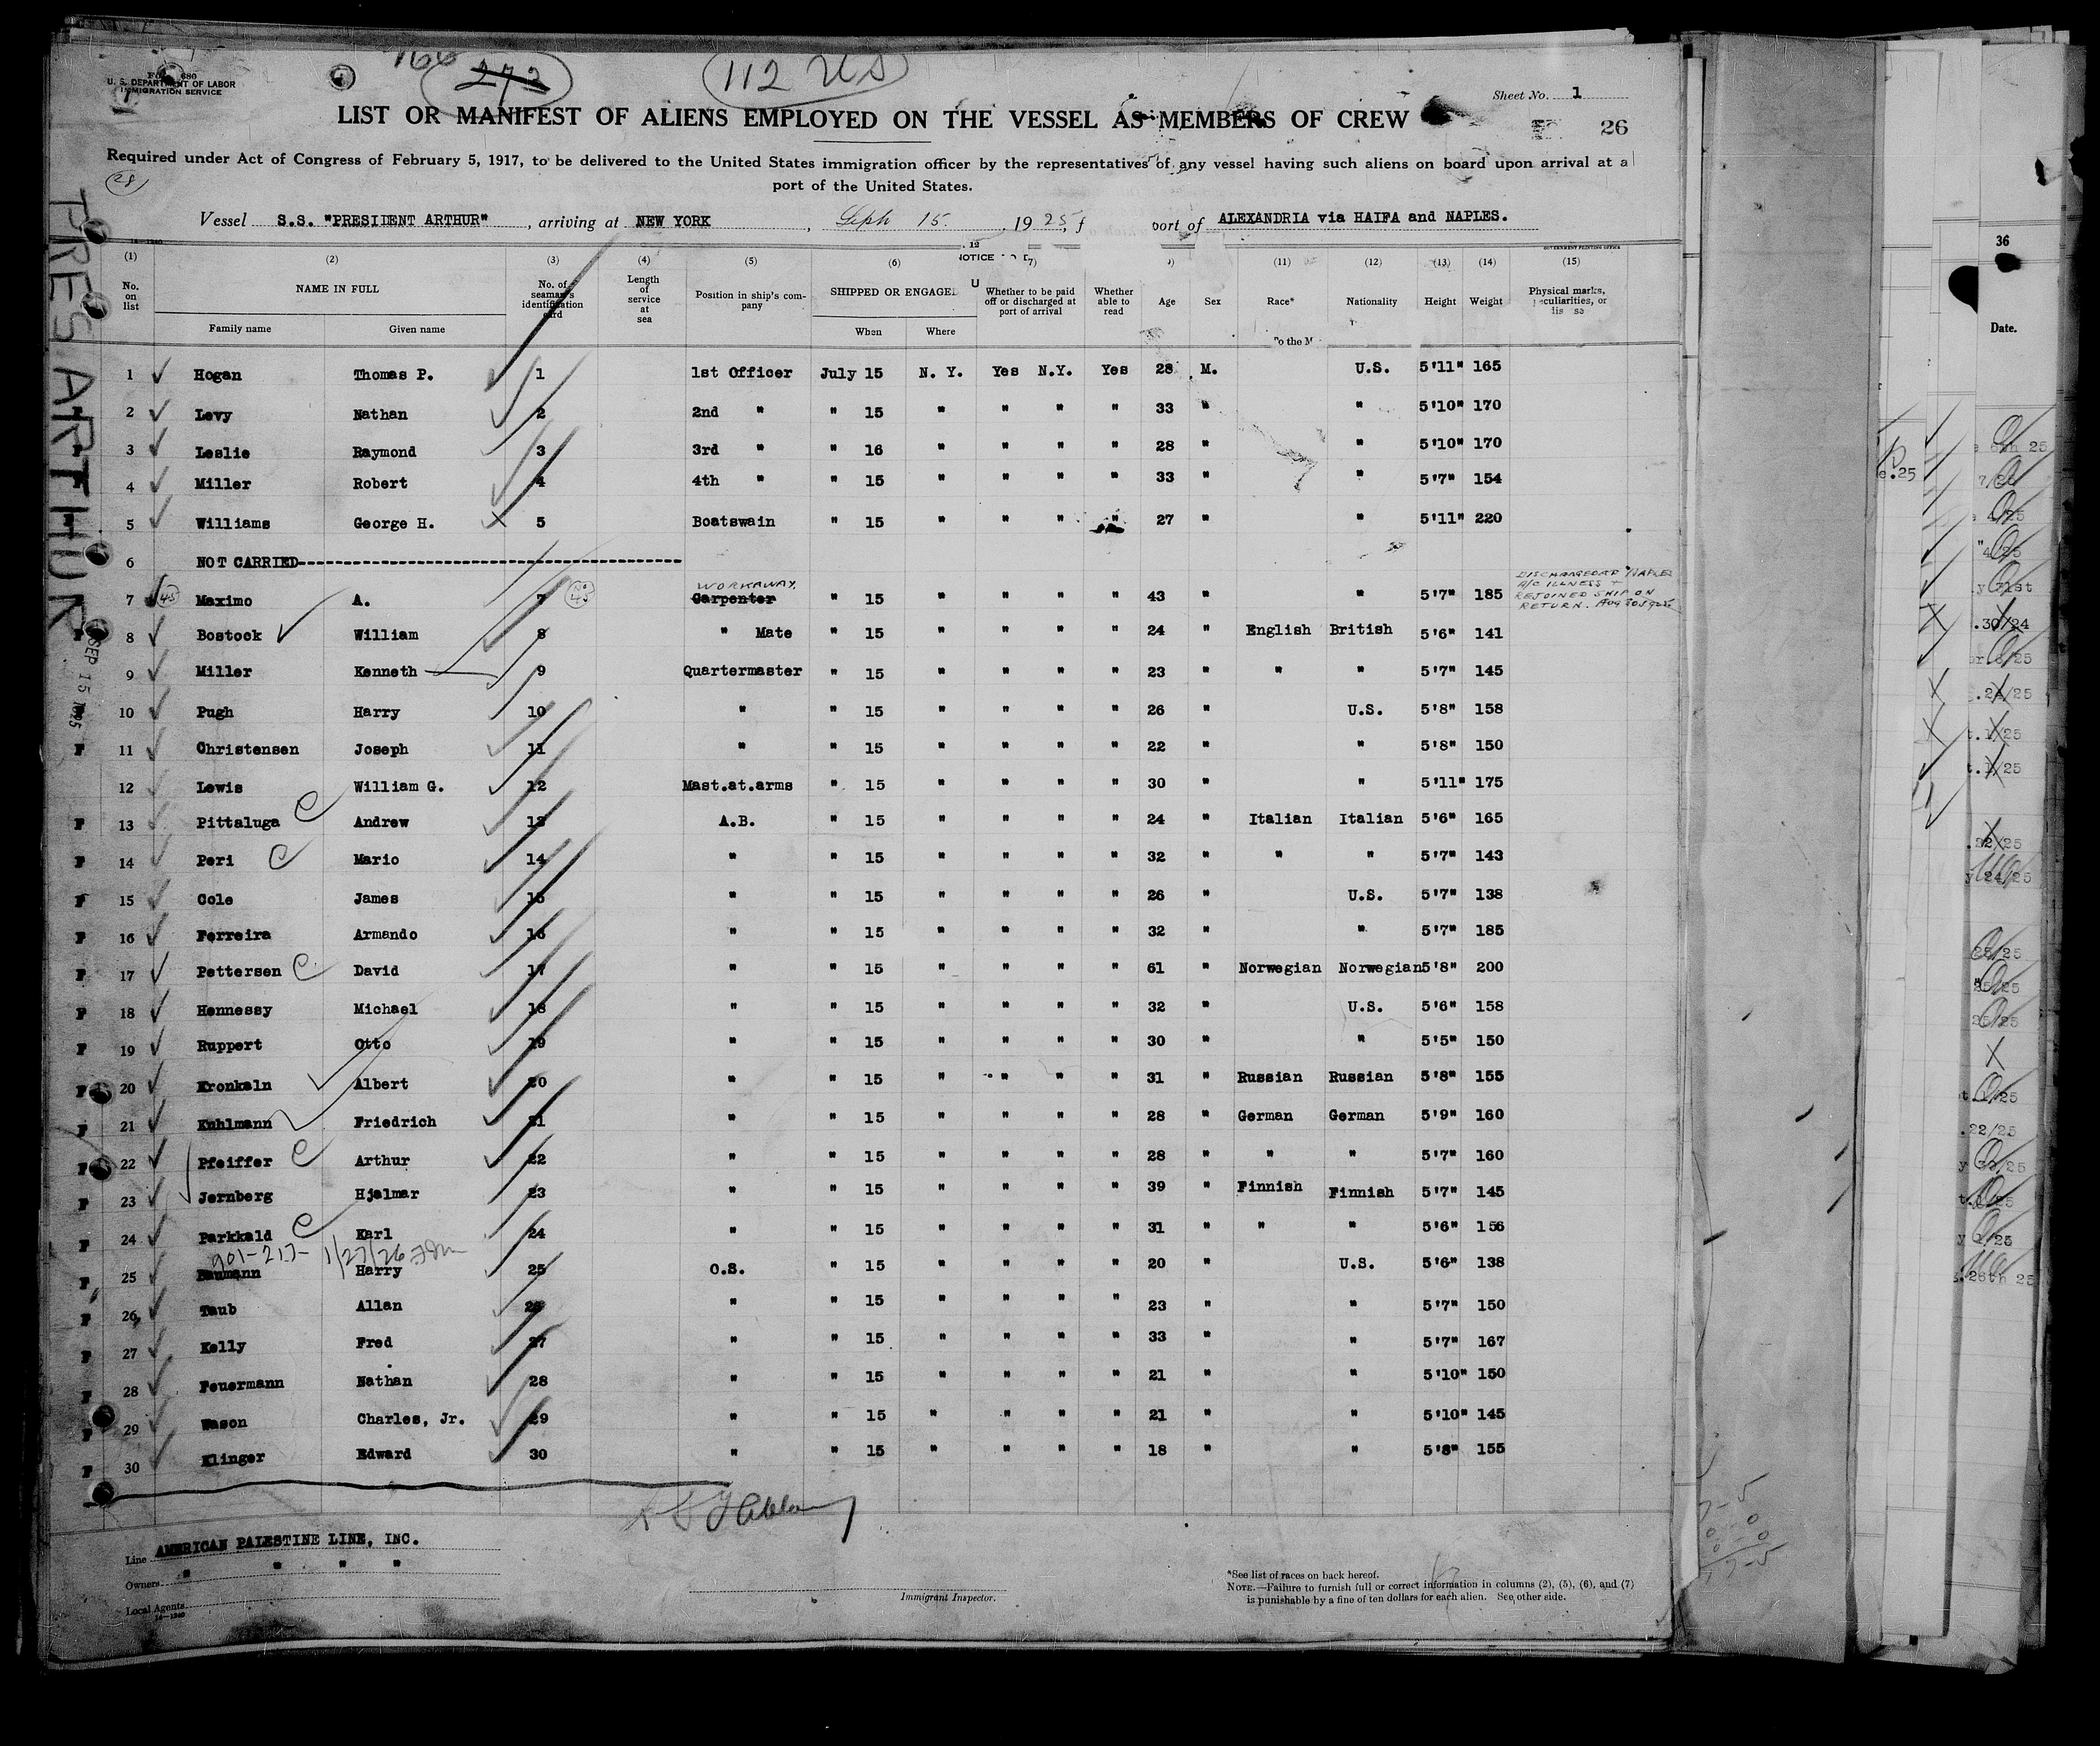 166 272
112 US
U. S. DEPARTMENT OF LABOR
IMMIGRATION SERVICE
Sheet No. 1
LIST OR MANIFEST OF ALIENS EMPLOYED ON THE VESSEL AS MEMBERS OF CREW
26
Required under Act of Congress of February 5, 1917, to be delivered to the United States immigration officer by the representatives of any vessel having such aliens on board upon arrival at a
28
port of the United States.
Vessel S.S. "PRESIDENT ARTHUR", arriving at NEW YORK, Seph 15. 1925, f port of ALEXANDRIA via HAIFA and NAPLES.
PRES ARTHUR
SEP 15 1925
(1) (2) (3) (4) (5) (6) 7) (11) (12) (13) (14) (15)
No. on list
NAME IN FULL
Family name Given name
No. of seaman's identification card
Length of service at sea
Position in ship's company
SHIPPED OR ENGAGE
When Where
Whether to be paid off or discharged at port of arrival
Whether able to read
Age Sex Race* Nationality Height Weight
Physical marks, peculiarities, or
1 Hogan Thomas P. 1 1st Officer July 15 N. Y. Yes N.Y. Yes 28 M. U.S. 5'11" 165
2 Levy Nathan 2 2nd " " 15 " " " " 33 " " 5'10" 170
3 Leslie Raymond 3 3rd " " 16 " " " " 28 " " 5'10" 170
4 Miller Robert 4 4th " " 15 " " " " 33 " " 5'7" 154
5 Williams George H. 5 Boatswain " 15 " " " " 27 " " 5'11" 220
6 NOT CARRIED
WORKAWAY.
7 45 Maximo A. 7 No 45 Carpenter " 15 " " " " 43 " " 5'7" 185
DISCHARGED AT NAPLES
A/C ILLNESS +
REJOINED SHIP ON
RETURN. AUG 30 1925
8 Bostock William 8 " Mate " 15 " " " " 24 " English British 5'6" 141
9 Miller Kenneth 9 Quartermaster " 15 " " " " 23 " " " 5'7" 145
10 Pugh Harry 10 " " 15 " " " " 26 " U.S. 5'8" 158
F 11 Christensen Joseph 11 " " 15 " " " " 22 " " 5'8" 150
12 Lewis William G. 12 Mast.at.arms " 15 " " " " 30 " " 5'11" 175
F 13 Pittaluga C Andrew 13 A.B. " 15 " " " " 24 " Italian Italian 5'6" 165
F 14 Peri C Mario 14 " " 15 " " " " 32 " " " 5'7" 143
F 15 Cole James 15 " " 15 " " " " 26 " U.S. 5'7" 138
F 16 Ferreira Armando 16 " " 15 " " " " 32 " " 5'7" 185
F 17 Pettersen C David 17 " " 15 " " " " 61 " Norwegian Norwegian 5'8" 200
F 18 Hennessy Michael 18 " " 15 " " " " 32 " U.S. 5'6" 158
F 19 Ruppert Otto 19 " " 15 " " " " 30 " " 5'5" 150
F 20 Kronkaln Albert 20 " " 15 " " " " 31 " Russian Russian 5'8" 155
F 21 Kuhlmann Friedrich 21 " " 15 " " " " 28 " German German 5'9" 160
F 22 Pfeiffer C Arthur 22 " " 15 " " " " 28 " " " 5'7" 160
F 23 Jernberg Hjalmar 23 " " 15 " " " " 39 " Finnish Finnish 5'7" 145
F 24 Parkkald C Karl 24 " " 15 " " " " 31 " " " 5'6" 156
901-217- 1/27/26
F 25 Baumann Harry 25 O.S. " 15 " " " " 20 " U.S. 5'6" 138
F 26 Taub Allan 26 " " 15 " " " " 23 " " 5'7" 150
F 27 Kelly Fred 27 " " 15 " " " " 33 " " 5'7" 167
F 28 Feuermann Nathan 28 " " 15 " " " " 21 " " 5'10" 150
F 29 Wason Charles, Jr. 29 " " 15 " " " " 21 " " 5'10" 145
F 30 Klinger Edward 30 " " 15 " " " " 18 " " 5'8" 155
Line AMERICAN PALESTINE LINE, INC.
Owners " " " "
Local Agents
Immigrant Inspector.
*See list of races on back hereof.
NOTE.—Failure to furnish full or correct information in columns (2), (5), (6), and (7)
is punishable by a fine of ten dollars for each alien. See other side.
36
Date.